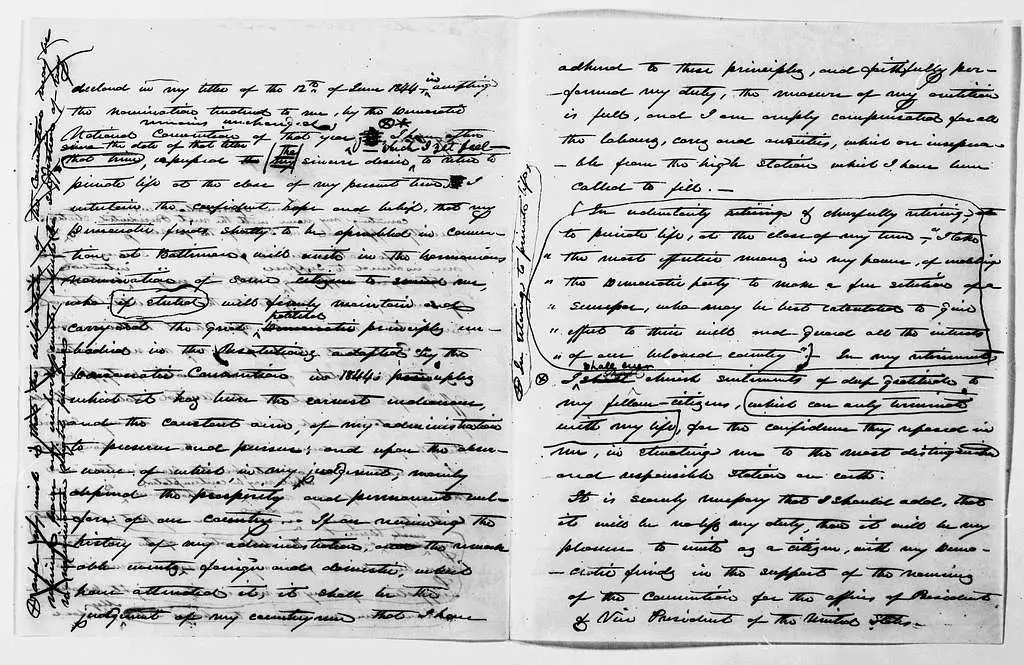 declared in my letter of the 12th of June 1844, in accepting
the nomination tendered to me, by the Democratic
National Convention of that year
remains unchanged
since the date of that letter
that time expressed the sincere desire, to retire to
private life at the close of my present term. I
entertain the confident hope and belief, that my
Democratic friends shortly to be assembled in Conven-
tion at Baltimore will unite in the harmonious
nomination of some citizen to succeed me,
who if elected will firmly maintain and
carry out the great political Democratic principles em-
bodied in the Resolutions adopted by the
Democratic Convention in 1844; principles
which it has been the earnest endeavour,
and the constant aim, of my administration
to preserve and pursue; and upon the observ-
ance of which in my judgment, mainly
depend the prosperity and permanent wel-
fare of our country. If on reviewing the
history of my administration, and the remark-
able events, foreign and domestic, which
have attended it, it shall be the
judgment of my countrymen that I have
adhered to these principles, and faithfully per-
formed my duty, the measure of my ambition
is full, and I am amply compensated for all
the labours, cares and anxieties, which are insepara-
ble from the high station which I have been
called to fill. -
In voluntarily retiring & cheerfully retiring,
to private life, at the close of my term, "I take
" the most effective means in my power, of enabling
" the Democratic party to make a free selection of a
" successor, who may be best calculated to give
" effect to their will and guard all the interests
" of our beloved country." In my retirement
I shall ever cherish sentiments of deep gratitude to
my fellow-citizens, which can only terminate
with my life, for the confidence they reposed in
me, in elevating me to the most distinguished
and responsible station on earth.
It is scarcely necessary that I should add, that
it will be no less my duty, than it will be my
pleasure to unite as a citizen, with my Demo-
cratic friends in the support of the nominees
of the Convention for the offices of President
& Vice President of the United States.
In retiring to private life,